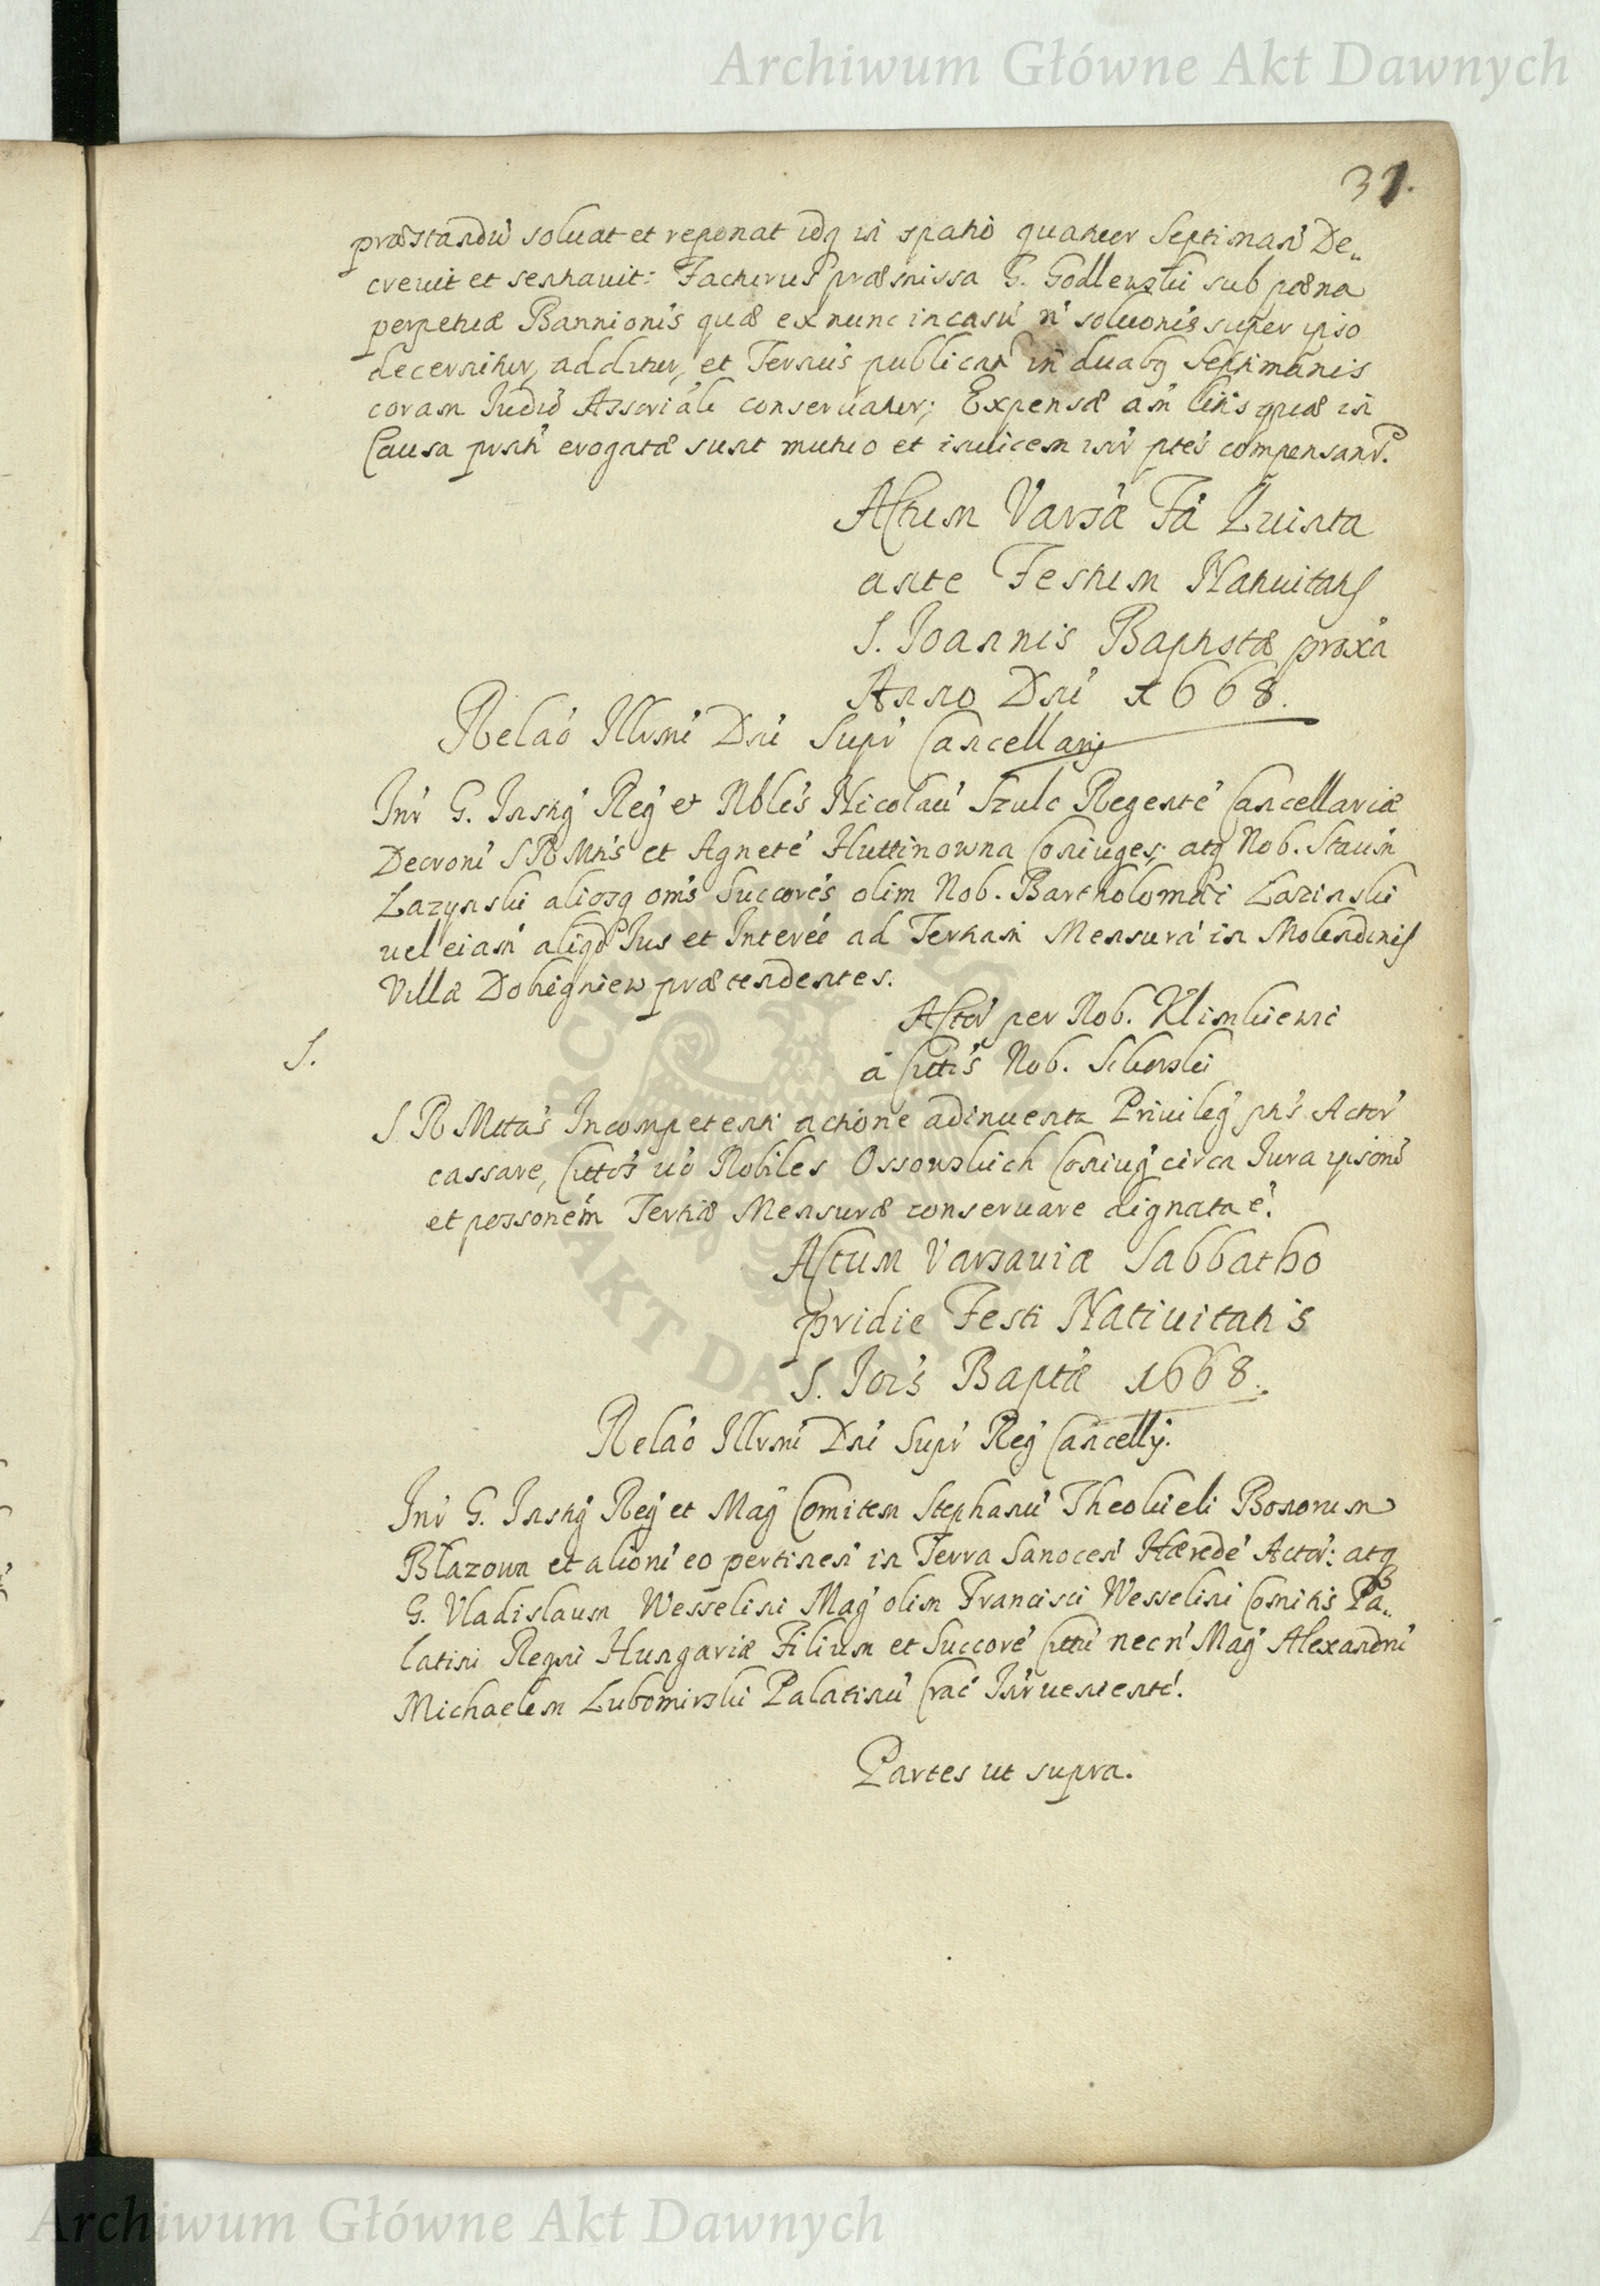 Archiwum Główne Akt Dawnych
31.
præstandū soluat et reponat idq in spatio quatuor Septimanar̃ De„
creuit et sententiauit: Facturus præmissa G. Godlewski sub pœna
perpetuæ Bannionis quæ ex nunc in casu n̄ soluonis super ipso
decernitur, additur, et Ternūs publicatr̃ in duabq Septimanis
coram Judio Assoriali conseruatur; Expensæ am̄ litis quæ in
Causa pn̄ti erogatæ sunt mutuo et inuicem inr̄ ptes compensantr.
Actum Varsæ Fā Quinta
ante Festum Natiuitatis
S. Joannis Baptistæ proxa
Anno Dn̄i 1668.
Relaō Illrmi Dn̄i Supr̄ Cancellarij
Inr̄ G. Instig Reg et Nbles Nicolaū Szulc Regentē Cancellariæ
Decroni S R Mtis et Agnetē Huttinowna Coniuges, atq Nob. Stauñ
Lazynski aliosq oms Succores olim Nob. Bartholomæi Lazinski
uel eiam aliqd Jus et Intereē ad Tertiam Mensurā in Molendinis
Villæ Dobiegniew prætendentes.
Actor per Nob. Klimkiewic
S.
a Cittis Nob. Sikorski
S R Mttas Incompetenti actione adinuenta Priuileg pn̄s Actor̄
cassare, Cittos uō Nobiles Ossowskich Coniug circa Jura ipsonī
et possonem Tertiæ Mensuræ conseruare dignata ē.
Actum Varsauiæ Sabbatho
pridie Festi Natiuitatis
S. Jois Baptæ 1668.
Relaō Illrmi Dn̄i Supr̄ Reg Cancellij.
Inr̄ G. Instig Reg et Mag Comitem Stephanū Thekieli Bonorum
Blazowa et alionī eo pertinen̄ in Terra Sanocen̄ Hæredē Actor: atq
G. Vladislaum Wesselini Mag olim Francisci Wesselini Comitis Pa„
latini Regni Hungariæ Filium et Succorē Cittū necn̄ Mag Alexandrū
Michaelem Lubomirski Palatinū Crac Inr̄uenientē.
Partes ut supra.
ARCHIWUM GŁÓWNE AKT DAWNYCH
Archiwum Główne Akt Dawnych